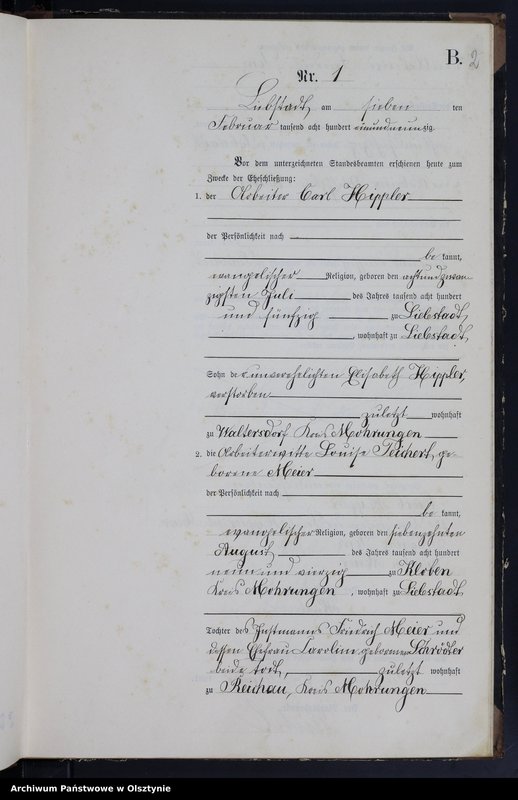 B. 2
Nr. 1
Liebstadt, am sieben ten
Februar tausend acht hundert einundneunzig.
Vor dem unterzeichneten Standesbeamten erschienen heute zum
Zwecke der Eheschließung:
1. der Arbeiter Carl Hippler
der Persönlichkeit nach
be kannt,
evangelischer Religion, geboren den achtundzwan-
zigsten Juli des Jahres tausend acht hundert
und fünfzig zu Liebstadt,
, wohnhaft zu Liebstadt,
Sohn der unverehelichten Elisabeth Hippler,
verstorben
zuletzt wohnhaft
zu Waltersdorf Kreis Mohrungen
2. die Arbeiterwitwe Louise Teichert, ge-
borene Meier
der Persönlichkeit nach
be kannt,
evangelischer Religion, geboren den siebenzehnten
August des Jahres tausend acht hundert
neun und vierzig zu Kloben
Kreis Mohrungen, wohnhaft zu Liebstadt
Tochter des Instmanns Friedrich Meier und
dessen Ehefrau Caroline geborenen Schröder
beide todt, zuletzt wohnhaft
zu Reichau, Kreis Mohrungen
Archiwum Państwowe w Olsztynie